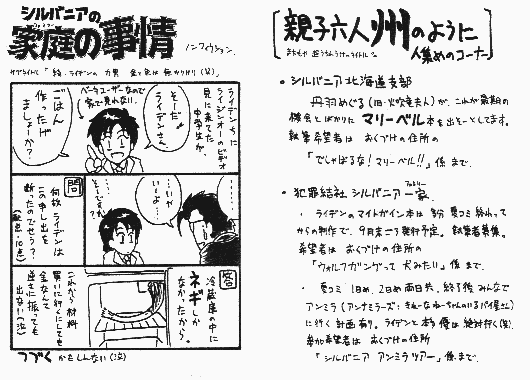 シルバニアの
家庭の事情
ノンフィクション。
ライデンちに
ライジンオーのビデオ
見に来てた
中学生が、
ベータユーザーなので
家で見れない。
そーだ
ライデンさん
ごはん
作ったげ
ましょーか?
……………
いや……
いーよ……
…そー
ですか?
問
何故ライデンは
この申し出を
断ったのでせう?
(配点・10点)
答
冷蔵庫の中に
ネギしか
なかったから。
これから材料
買いに行くにしても
金なんて
逆さに振っても
出ない(泣)
つづくかもしんない(泣)
親子六人州のように
人集めのコーナー
・シルバニア北海道支部
丹羽めぐる(旧・火吹竜夫人)が、これが最期の
機会とばかりにマリーベル本を出そーとしてます。
執筆希望者は おくづけの住所の
「でしゃばるな!マリーベル!!」係まで。
・犯罪結社 シルバニア一家
ファミリー
・ライデンのマイトガイン本は 夏コミ終わって
からの制作で、9月末〜発行予定。執筆者募集。
希望者は おくづけの住所の
「ウォルフガングって犬みたい」係まで。
・夏コミ 1日め、2日め両日共、終了後みんなで
アンミラ(アンナミラーズ:きれーなねーちゃんのいるパイ屋さん)
に行く計画有り。ライデンと 俺は絶対行く(笑)。
参加希望者は おくづけの住所
「シルバニア アンミラツアー」係まで。